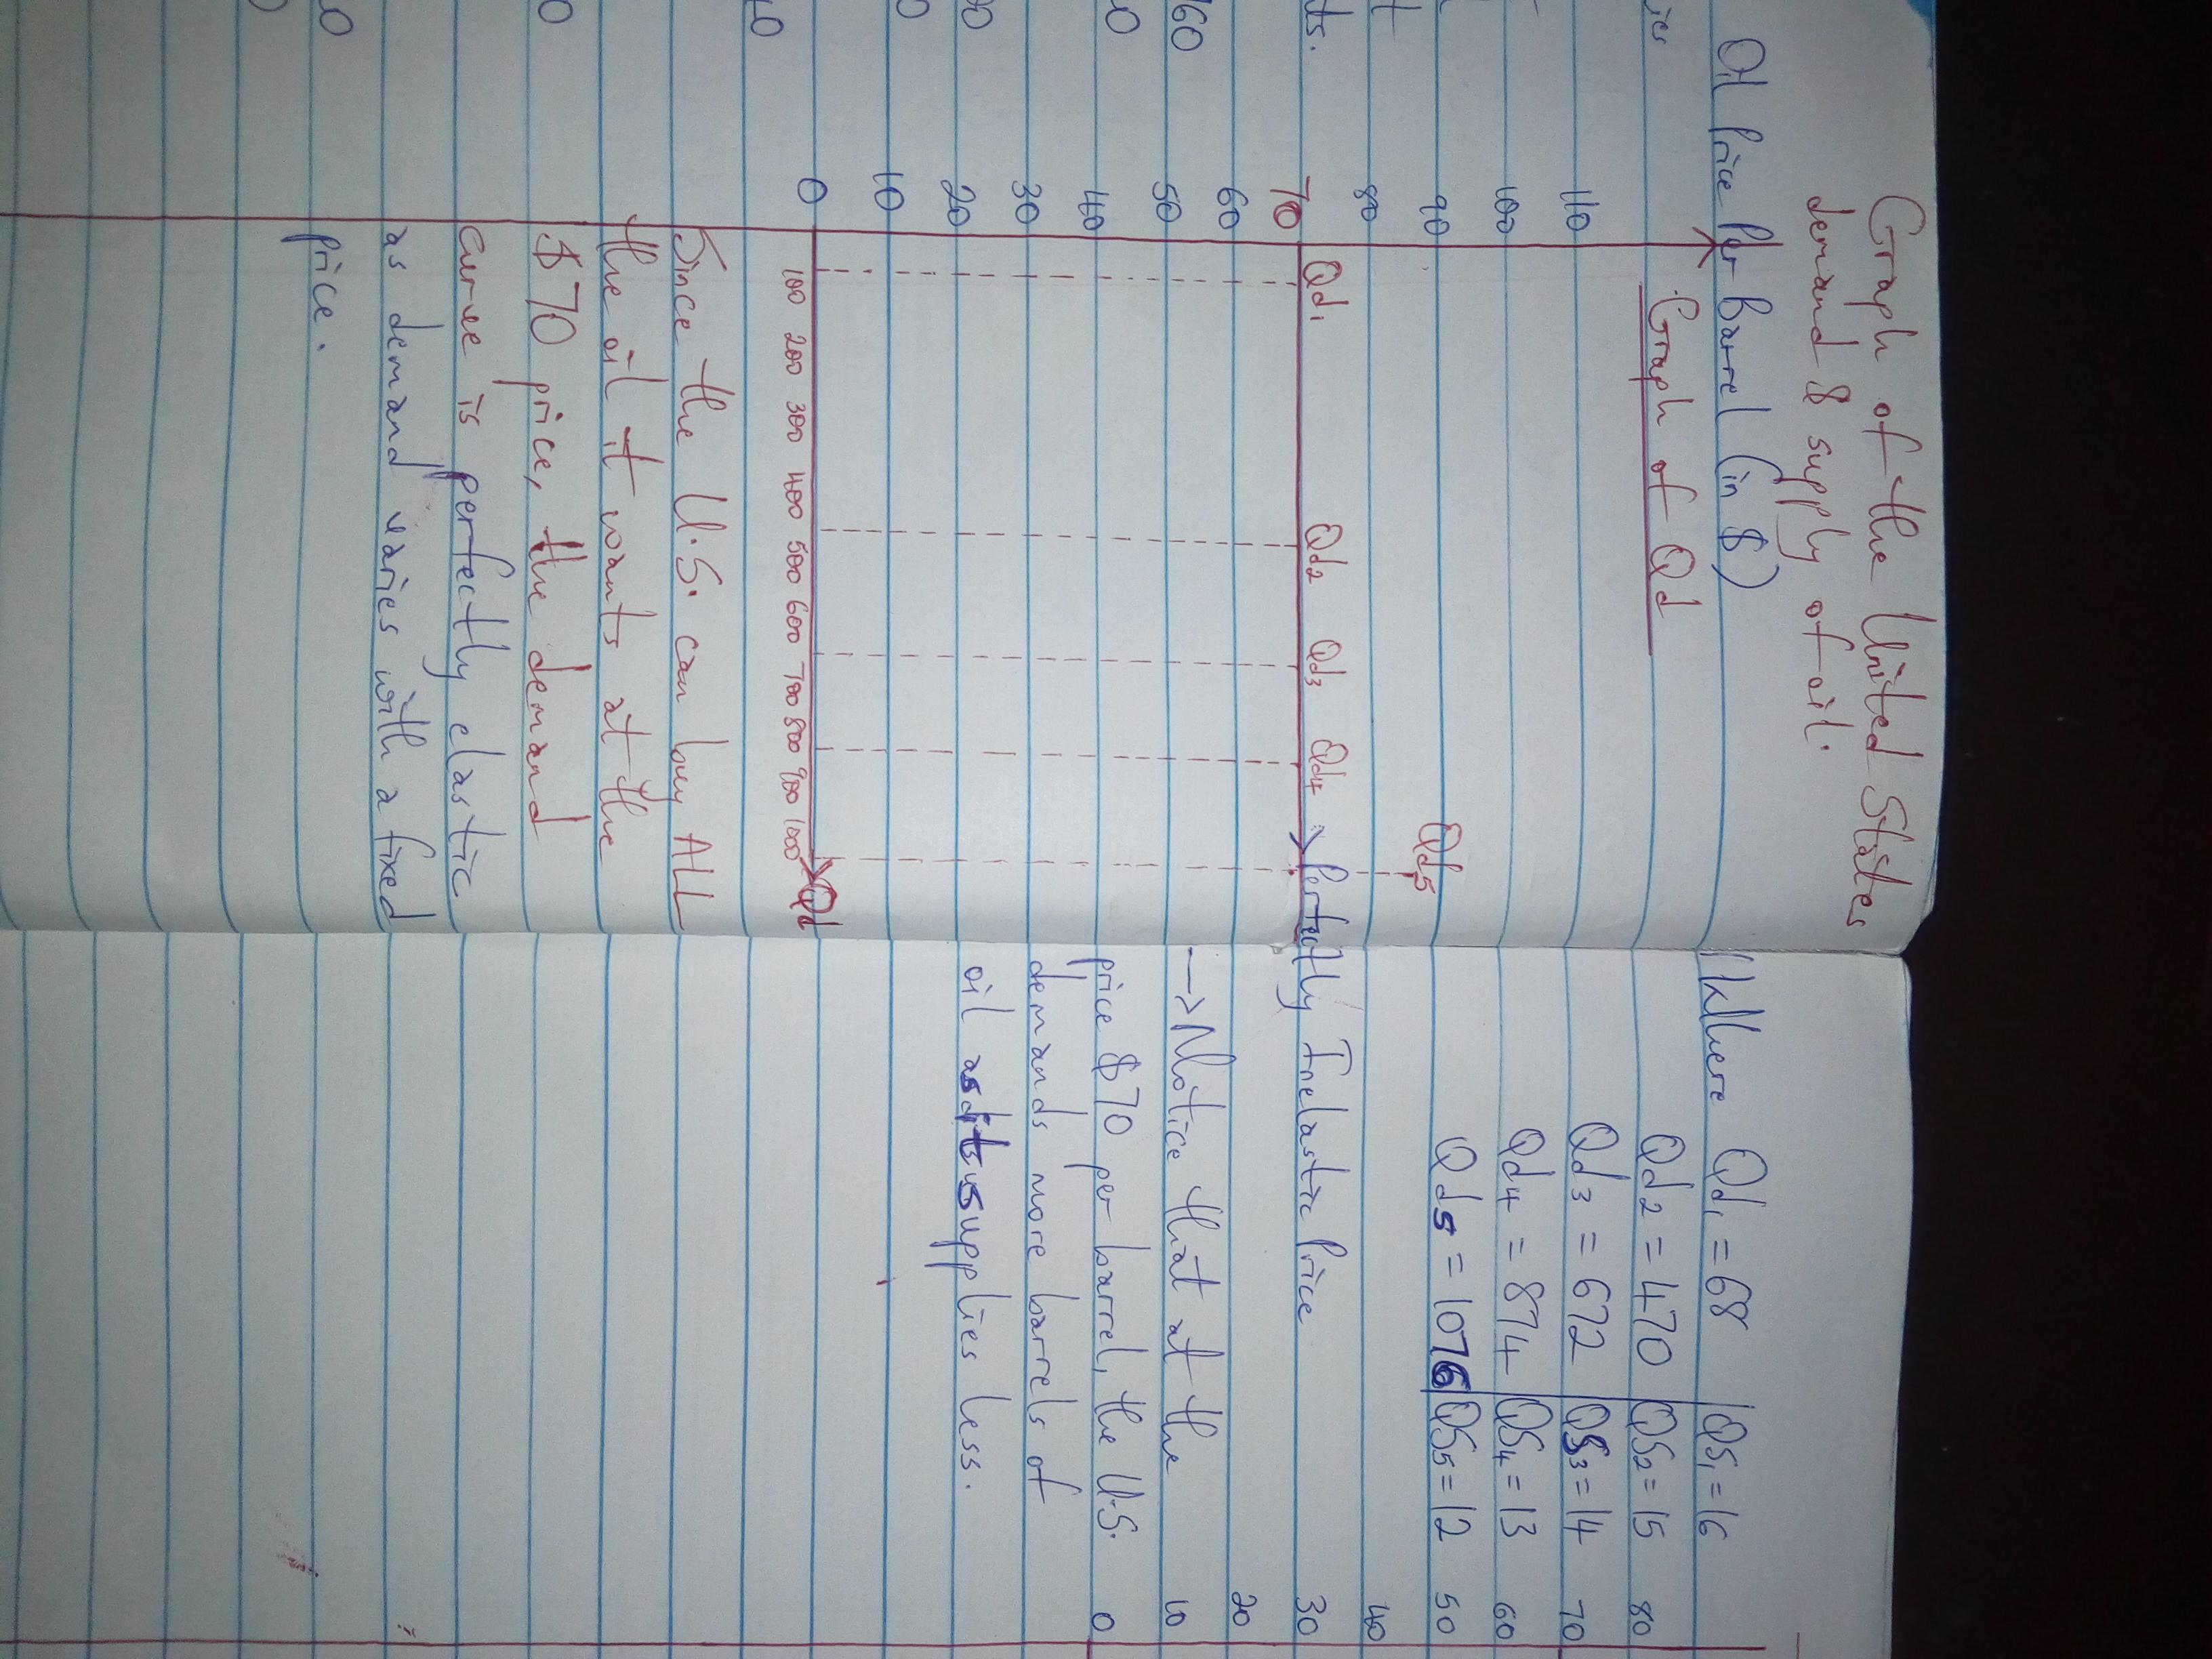 Graph of the United States
demand & supply of oil.
Oil Price Per barrel (in $)
Graph of Qd
110
100
90
Qd5
80
70
Qd1 Qd2 Qd3 Qd4 Perfectly Inelastic Price
60
50
40
30
20
10
0
100 200 300 400 500 600 700 800 900 1000
Qd
Since the U.S. can buy ALL
the oil it wants at the
$70 price, the demand
curve is perfectly elastic
as demand varies with a fixed
price.
Where Qd1 = 68 QS1 = 16
Qd2 = 470 QS2 = 15
Qd3 = 672 QS3 = 14
Qd4 = 874 QS4 = 13
Qd5 = 1076 QS5 = 12
→ Notice that at the
price $70 per barrel, the U.S.
demands more barrels of
oil as it supplies less.
80
70
60
50
40
30
20
10
0